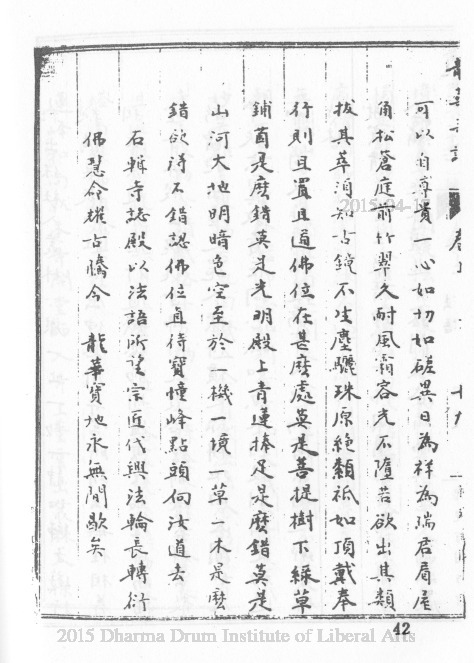 可以自尊貴一心如切如磋異日為样為瑞君眉屋
角松蒼庭前竹翠久耐風霜容光不墮若欲出其類
拔其萃須知古鏡不生塵驪珠原絶纇祇如頂戴奉
行則且置且道佛位在甚麽處莫是菩提樹下綠草
鋪茵是麽錯莫是光明殿上青蓮捧足是麽錯莫是
山河大地明暗色空至於一機一境一草一木是麽
錯欲得不錯認佛位直待寶幢峰點頭向汝道去
石輞寺誌殿以法語所望宗匠代興法輪長轉衍
佛慧命耀古騰今 龍華寶地永無間歇矣
2015-04-1
42
2015 Dharma Drum Institute of Liberal Arts